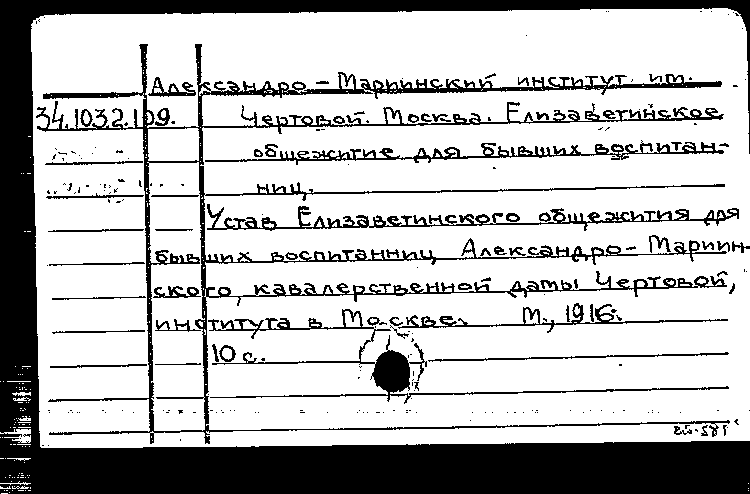 Александро-Мариинский институт им.
34.103.2.109. Чертовой. Москва. Елизаветинское
общежитие для бывших воспитан-
ниц.
Устав Елизаветинского общежития для
бывших воспитанниц Александро-Мариин-
ского, кавалерственной дамы Чертовой,
института в Москве. М., 1916.
10 с.